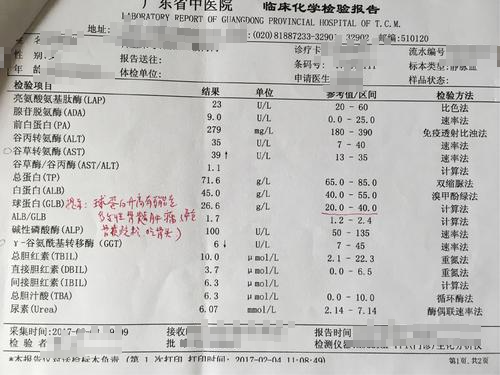 广东省中医院 临床化学检验报告
LABORATORY REPORT OF GUANGDONG PROVINCIAL HOSPITAL OF T.C.M.
地址: (020)81887233-32901 32902 邮编:510120
诊疗卡 流水号
姓 名
报告送往: 条码号: 标本类型:静脉血
年 龄 体检单位: 申请医生 样品状态:
检验项目 结果 单位 参考值/区间 检验方法
亮氨酸氨基肽酶(LAP) 23 U/L 20 - 60 比色法
腺苷脱氨酶(ADA) 9.0 U/L 0.0 - 25.0 速率法
前白蛋白(PA) 279 mg/L 180 - 390 免疫透射比浊法
谷丙转氨酶(ALT) 35 U/L 7 - 40 速率法
谷草转氨酶(AST) 39 ↑ U/L 13 - 35 速率法
谷草酶/谷丙酶(AST/ALT) 1.1 计算法
总蛋白(TP) 71.6 g/L 65.0 - 85.0 双缩脲法
白蛋白(ALB) 45.0 g/L 40.0 - 55.0 溴甲酚绿法
球蛋白(GLB) 26.6 g/L 20.0 - 40.0 计算法
球蛋白升高有可能是
多发性骨髓肿瘤
ALB/GLB 1.7 1.2 - 2.4 计算法
碱性磷酸酶(ALP) 100 U/L 50 - 135 速率法
γ-谷氨酰基转移酶(GGT) 6 ↓ U/L 7 - 45 速率法
总胆红素(TBIL) 10.0 μmol/L 2.1 - 22.3 重氮法
直接胆红素(DBIL) 3.7 μmol/L 0.0 - 6.5 重氮法
间接胆红素(IBIL) 6.3 μmol/L 计算法
总胆汁酸(TBA) 6.3 μmol/L 0.0 - 10.0 循环酶法
尿素(Urea) 6.07 mmol/L 2.14 - 7.14 酶偶联速率法
采集时间:2017-02 9:09 接收时 报告时间:
检 验 者 检测仪器
*本报告仅对送检标本负责 (第 1 次打印,打印时间:2017-02-04 11:08:49) 第1页,共2页